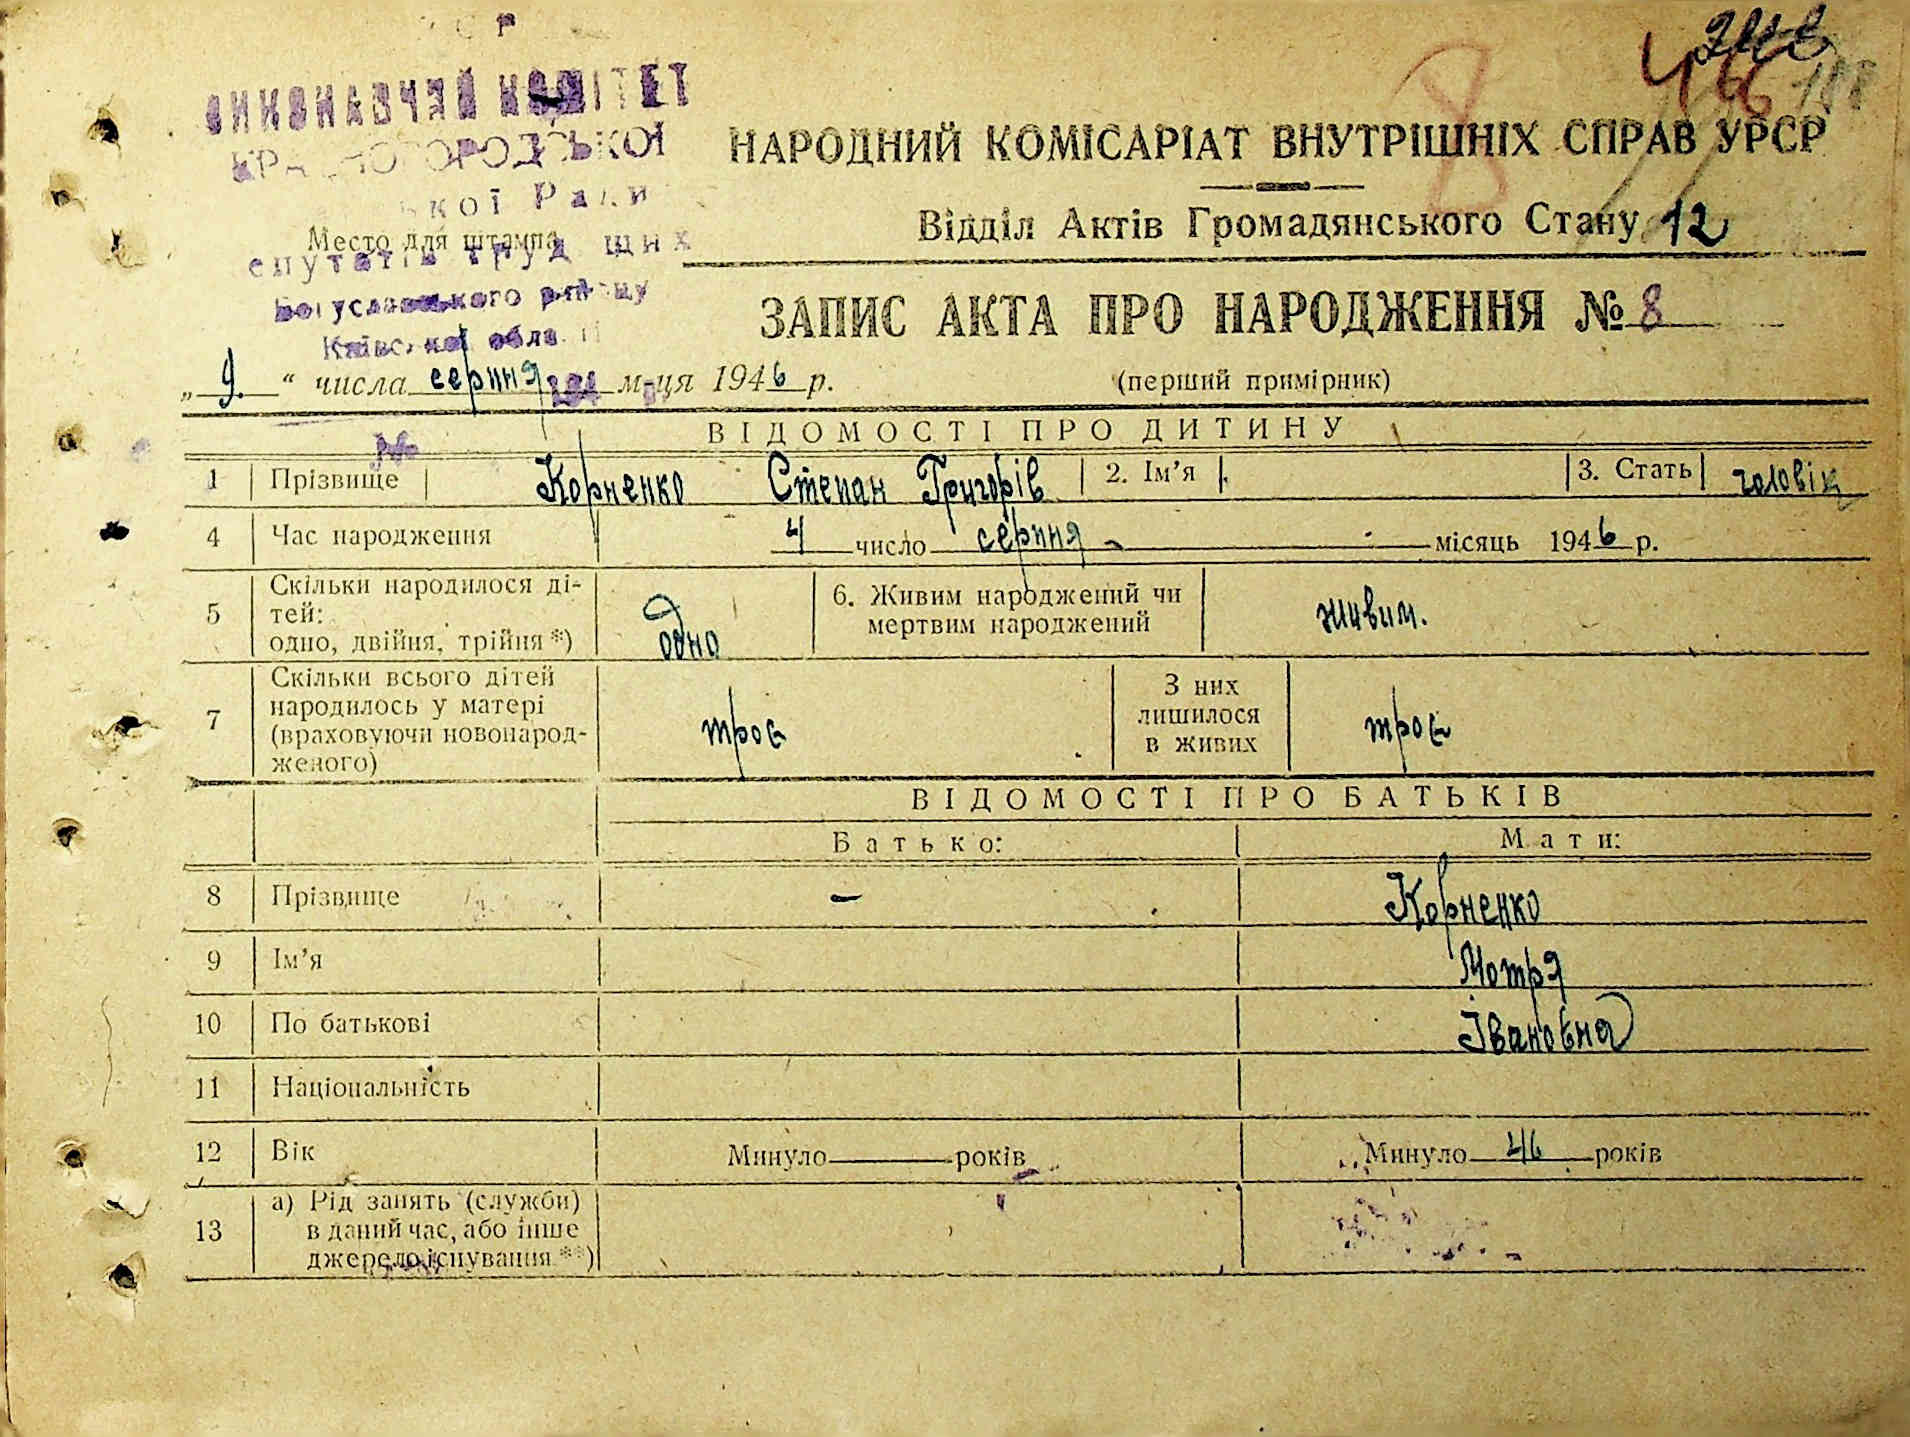 ВИКОНАВЧИЙ КОМІТЕТ
НАРОДНИЙ КОМІСАРІАТ ВНУТРІШНІХ СПРАВ УРСР
Відділ Актів Громадянського Стану 12
Место для штампа
Богуславського району
Київської обла
ЗАПИС АКТА ПРО НАРОДЖЕННЯ № 8
„9.“ числа серпня м-ця 1946 р.
(перший примірник)
ВІДОМОСТІ ПРО ДИТИНУ
1 Прізвище Корненко Степан Григорів 2. Ім’я 3. Стать чоловік
4 Час народження 4 число серпня місяць 1946 р.
5 Скільки народилося ді-
тей:
одно, двійня, трійня *) одно
6. Живим народжений чи
мертвим народжений живим.
7 Скільки всього дітей
народилось у матері
(враховуючи новонарод-
женого) троє
З них
лишилося
в живих троє
ВІДОМОСТІ ПРО БАТЬКІВ
Батько: Мати:
8 Прізвище – Корненко
9 Ім’я Мотря
10 По батькові Івановна
11 Національність
12 Вік Минуло років Минуло 46 років
13 а) Рід занять (служби)
в даний час, або інше
джерело існування **)